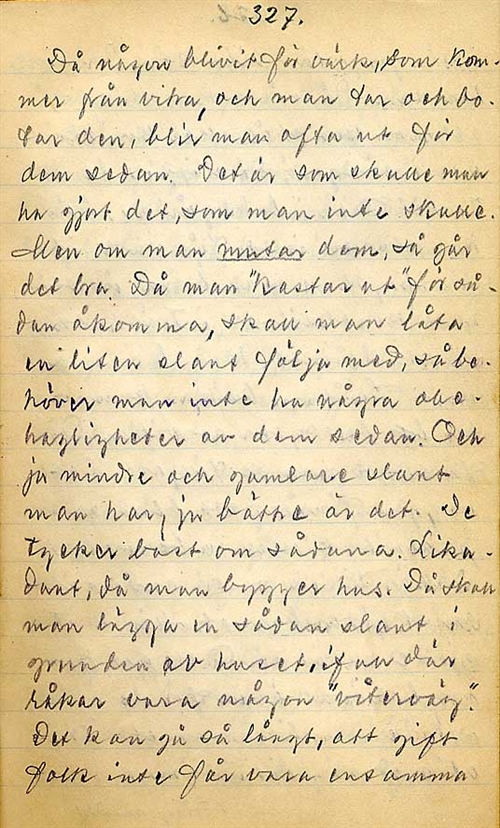 327.
Då någon blivit för värk, som kom-
mer från vitra, och man tar och bo-
tar den, blir man ofta ut för
dem sedan. Det är som skulle man
ha gjort det, som man inte skulle.
Men om man mutar dem, så går
det bra. Då man "kastar ut" för så-
dan åkomma, skall man låta
en liten slant följa med, så be-
höver man inte ha några obe-
hagligheter av dem sedan. Och
ju mindre och gamlare slant
man har, ju bättre är det. De
tycker bäst om sådana. Lika-
dant, då man bygger hus. Då skall
man lägga en sådan slant i
grunden av huset, ifall där
råkar vara någon "viterväg".
Det kan gå så långt, att gift
folk inte får vara ensamma